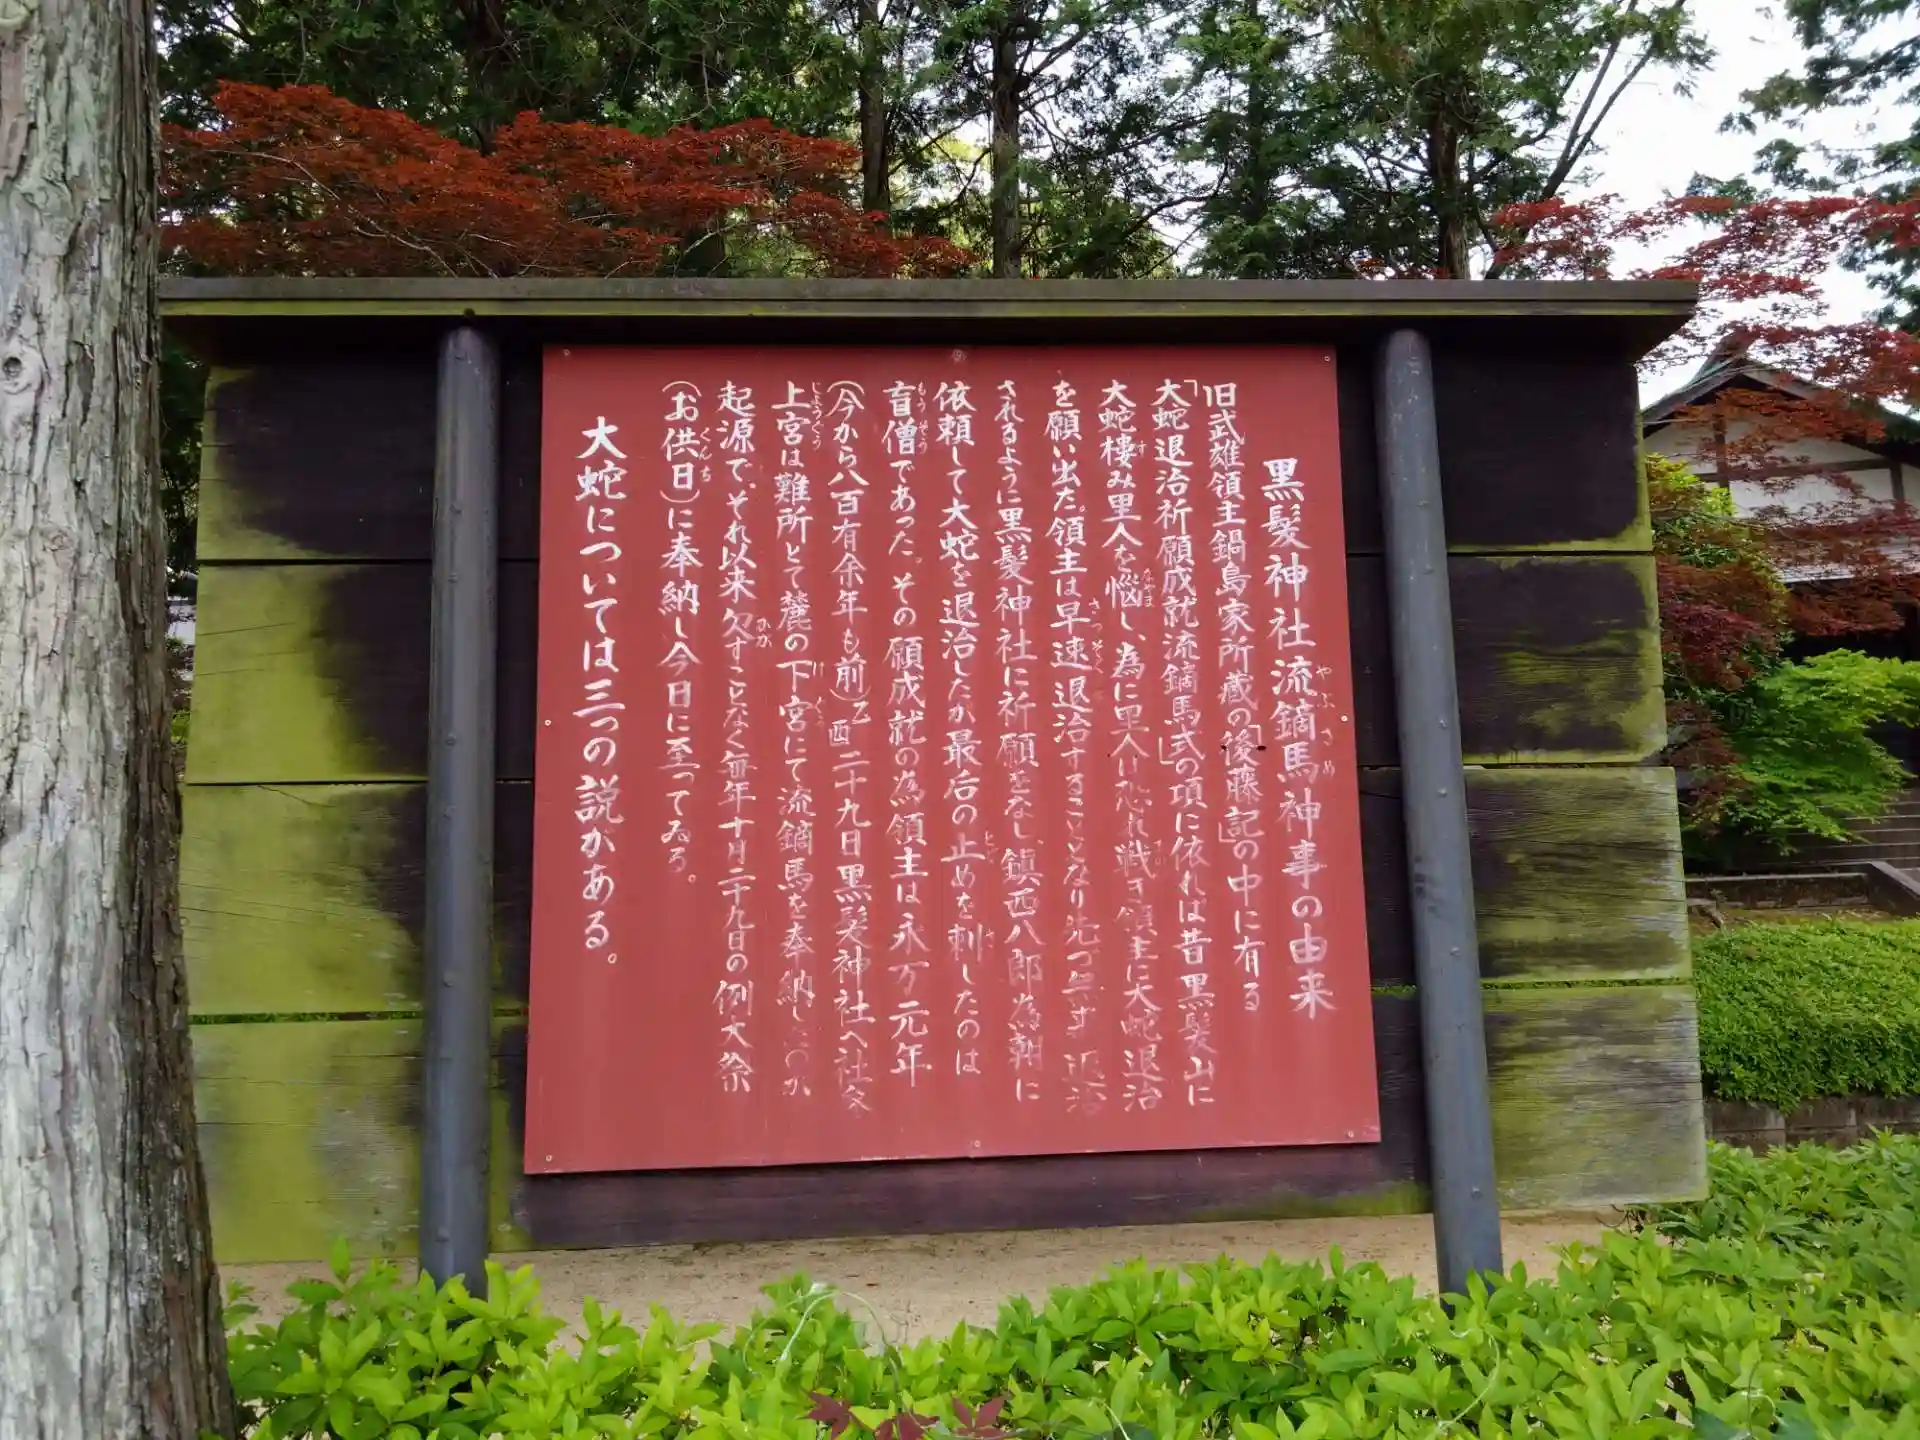 黒髪神社流鏑馬神事の由来
旧武雄領主鍋島家所蔵の「後藤記」の中に有る
「大蛇退治祈願成就流鏑馬式」の項に依れば昔黒髪山に
大蛇棲み里人を悩し、為に里人は恐れ戦き領主に大蛇退治
を願い出た。領主は早速退治することとなり先づ無事退治
されるように黒髪神社に祈願をなし、鎮西八郎為朝に
依頼して大蛇を退治したが最后の止めを刺したのは
盲僧であった。その願成就の為領主は永万元年
(今から八百有余年も前)乙酉二十九日黒髪神社へ社参
上宮は難所とて麓の下宮にて流鏑馬を奉納したのが
起源で、それ以来欠すことなく毎年十月二十九日の例大祭
(お供日)に奉納し今日に至ってゐる。
大蛇については三つの説がある。